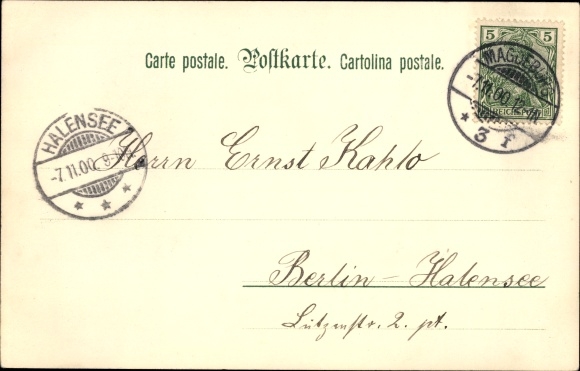 5 5
MAGDEBURG
-7.11.00.
* 3 f
REICHSPOST
Carte postale. Postkarte. Cartolina postale.
HALENSEE
-7.11.00. 9-
* * *
Herrn Ernst Kahlo
Berlin-Halensee
Lützenstr. 2. pt.